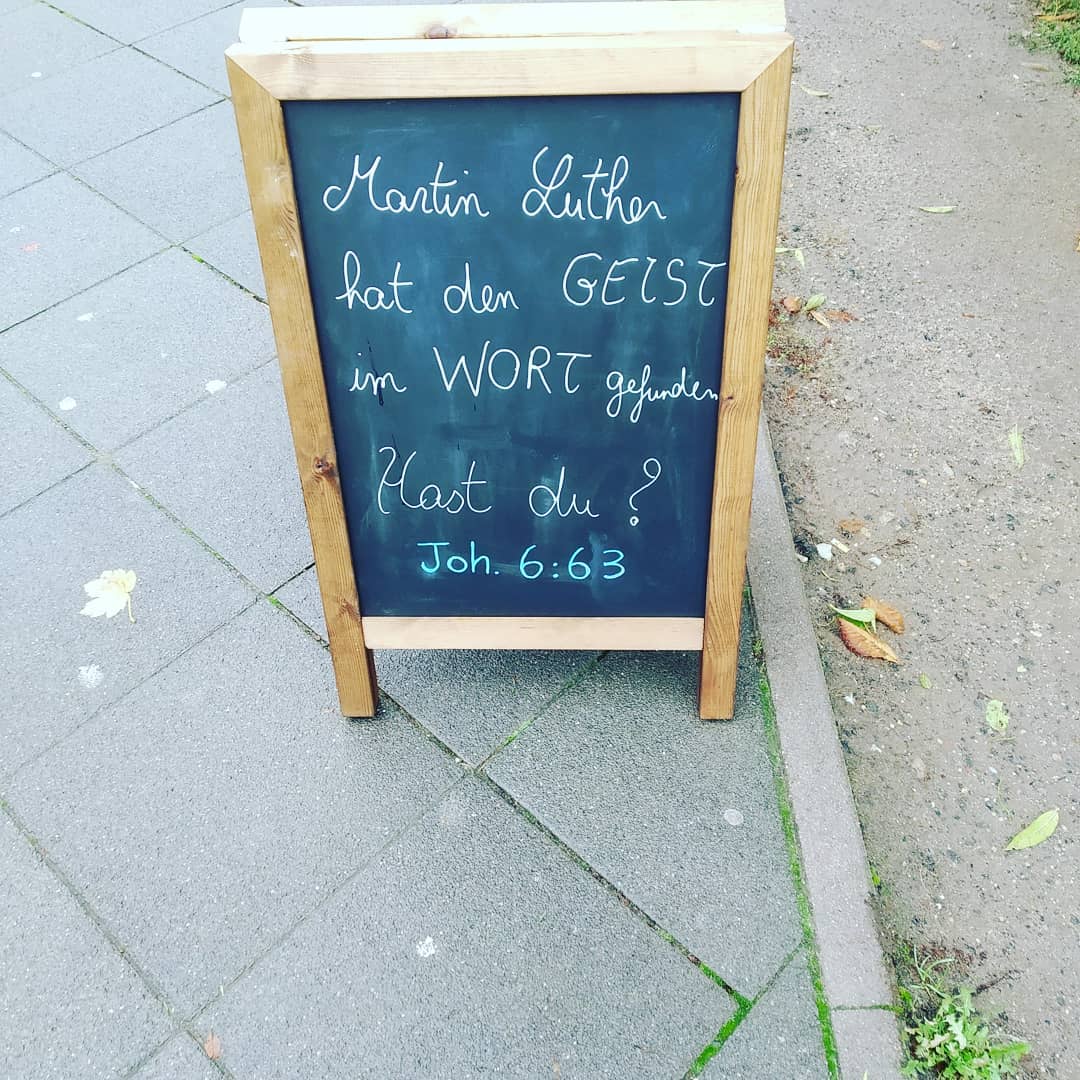 Martin Luther
hat den GEIST
im WORT gefunden
Hast du?
Joh. 6:63